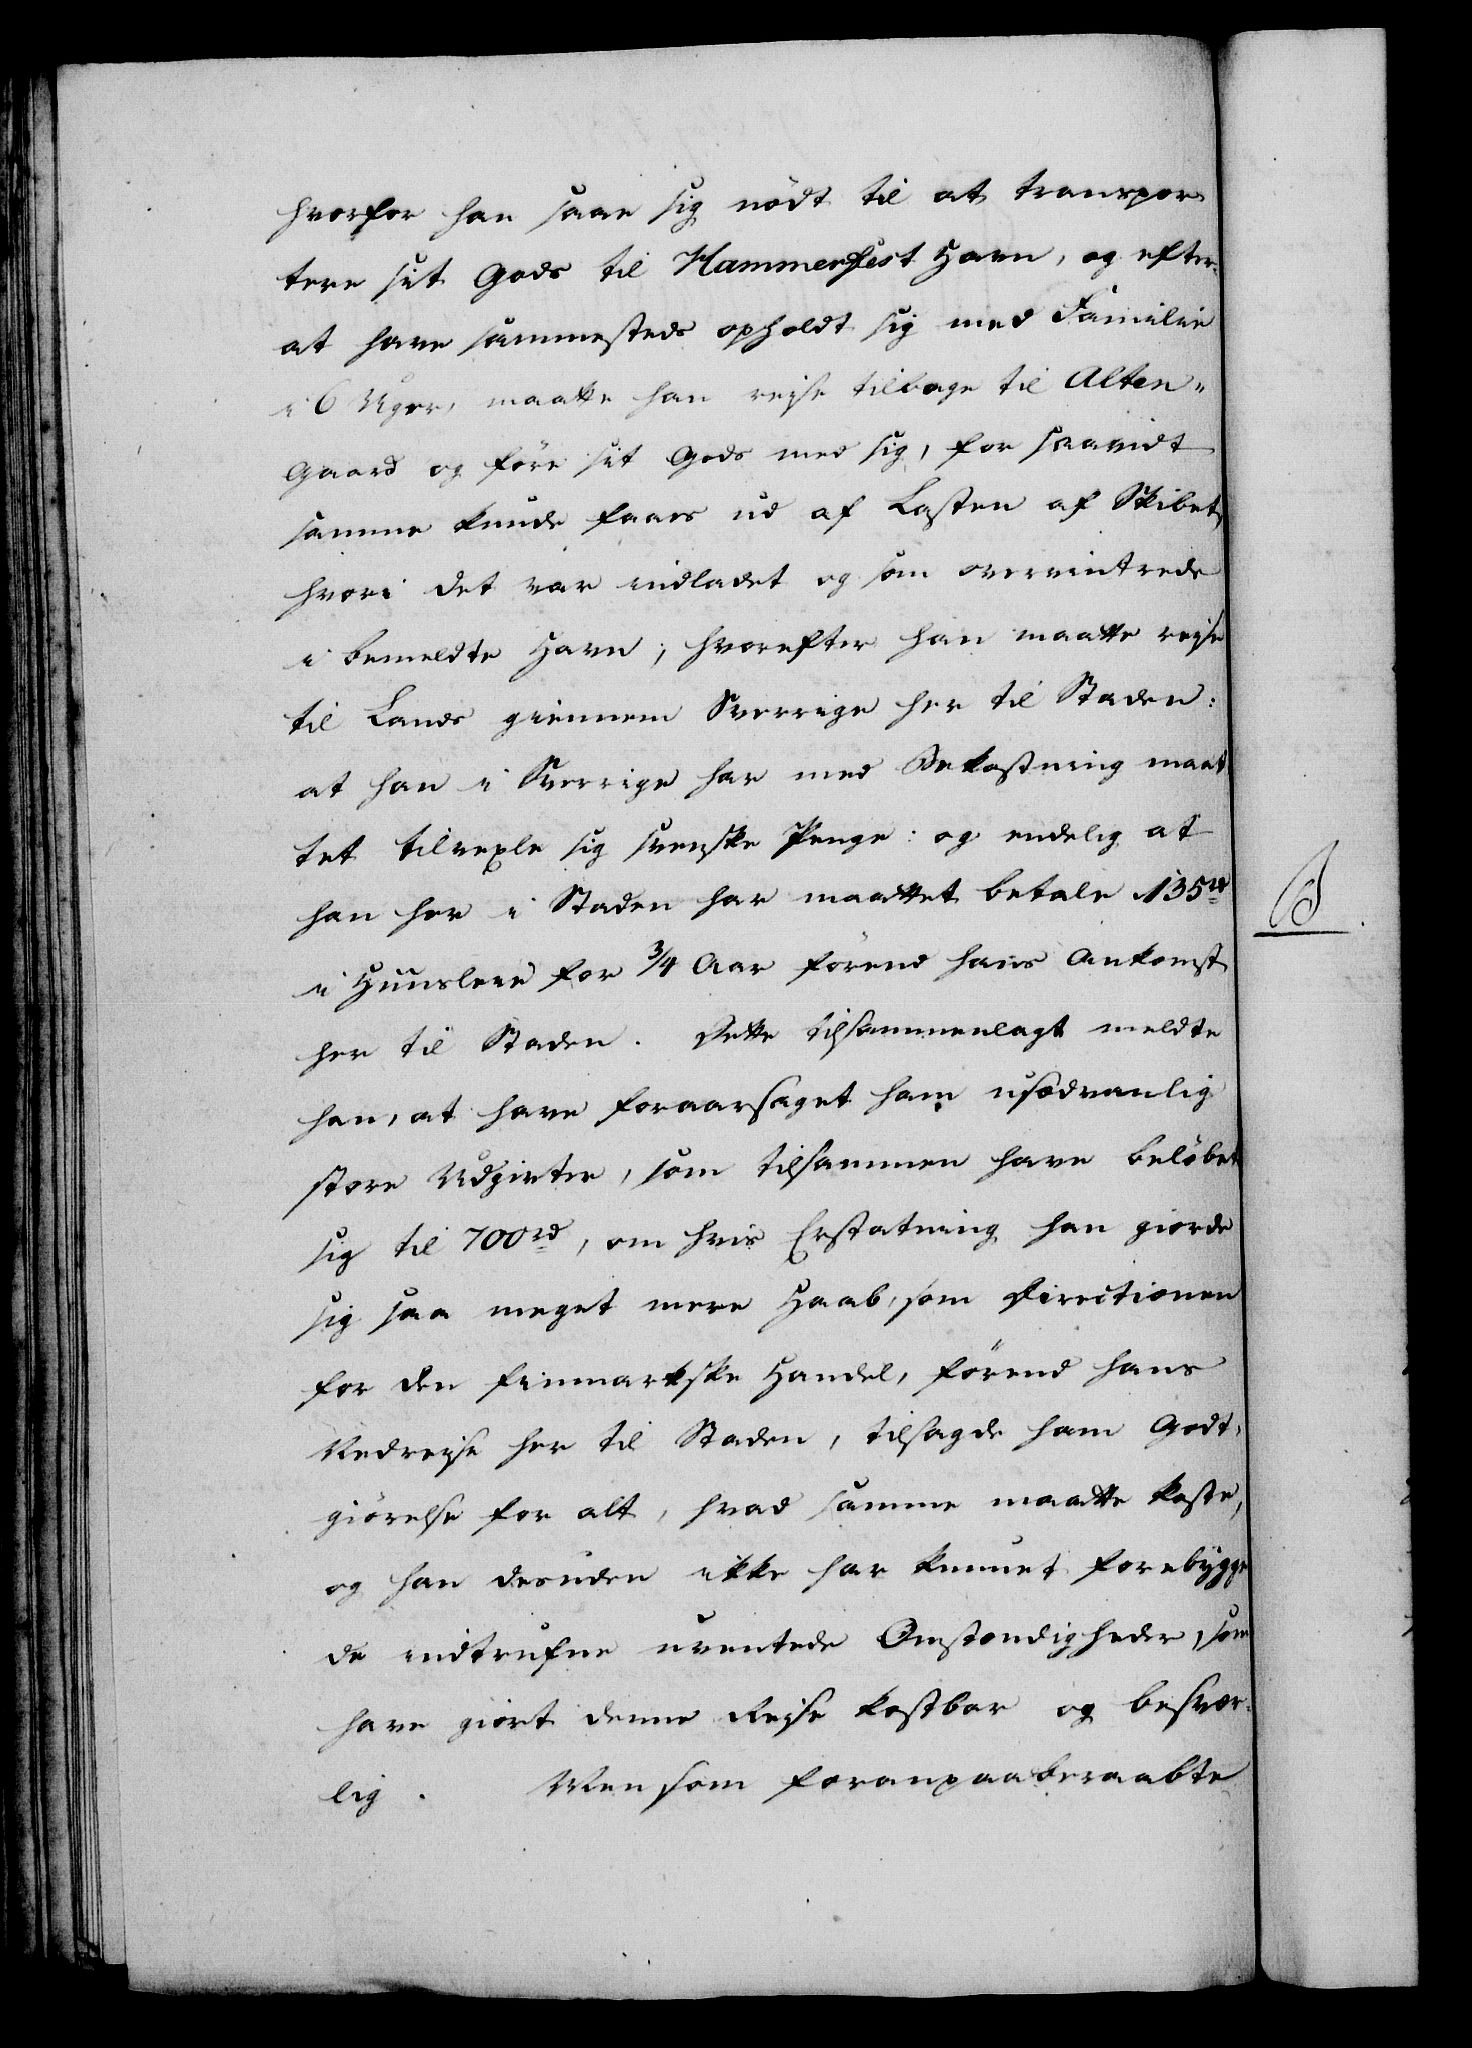 hvorfor han saae sig nödt til at transpor
tere sit Gods til Hammerfest Havn, og efter
at have sammesteds opholdt sig med Familie
i 6 Uger, maatte han reise tilbage til Alten-
gaard og före sit Gods med sig, for saavidt
samme kunde faaes ud af Lasten af Skibet,
hvori det var indladet og som overvintrede
i bemeldte Havn; hvorefter han maatte reise
til Lands giennem Sverrige her til Staden:
at han i Sverrige har med Bekostning maat
tet tilvexle sig svenske Penge: og endelig at
han her i Staden har maattet betale 135 rd
i Huusleie for 3/4 Aar förend hans Ankomst
her til Staden. Dette tilsammenlagt meldte
han, at have foraarsaget ham usædvanlig
store Udgivter, som tilsammen have belöbet
sig til 700 rd, om hvis Erstatning han giorde
sig saa meget mere Haab, som Directionen
for den finmarkske Handel, förend hans
Nedreise her til Staden, tilsagde ham Godt-
giörelse for alt, hvad samme maatte koste,
og han desuden ikke har kunnet forebygge
de indtrufne uventede Omstændigheder, som
have giort denne Reise kostbar og besvær-
lig. Men som foranpaaberaabte